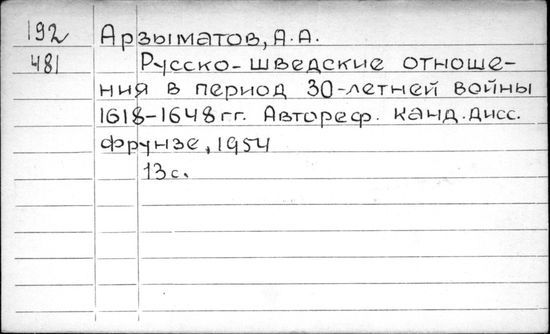 192 Арзыматов, А.А.
481 Русско-шведские отноше-
ния в период 30-летней войны
1618-1648 гг. Автореф. канд. дисс.
Фрунзе, 1954
13 с.